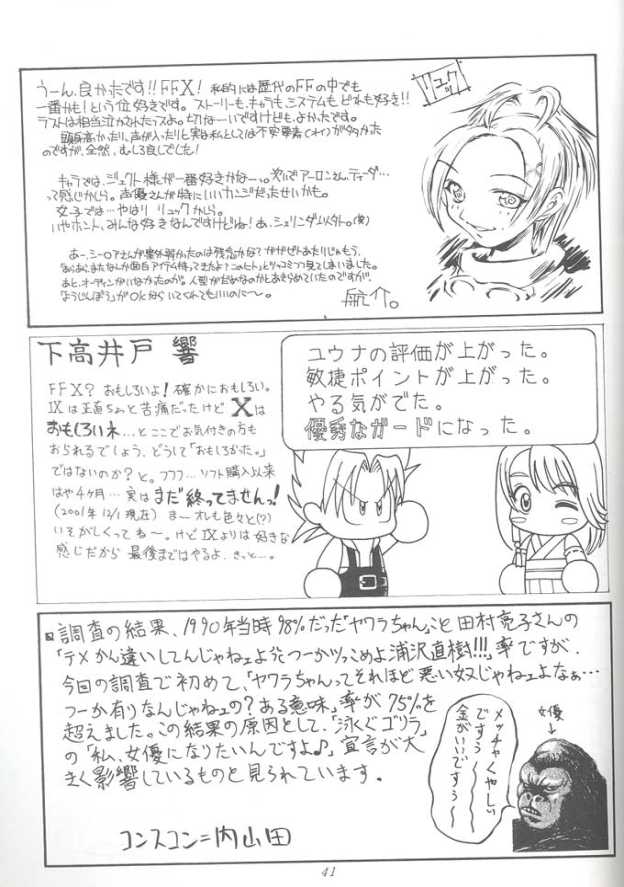 うーん、良かったです!! FFX! 私的には歴代のFFの中でも
一番かも!という位好きです。ストーリーも、キャラも、システムも どれも好き!!
ラストは相当泣かされたっスよ。切なーいですけども、よかったです。
頭身高かったり、声が入ったりと実は私としては不安要素
のですが、全然、むしろ良しでした!
キャラでは、ジェクト様が一番好きかなー。次いでアーロンさん、ティーダ…
って感じかしら。声優さんが特にいいカンジだったせいかも。
女子では…やはり リュックかしら。
いやホント、みんな好きなんですけどね! あ、シェリンダ以外。(笑)
あー、シーモアさんが案外弱かったのは残念かな?
あと、オーディンがいなかったのが。人型がだめなのかとあきらめていたのですが、
「ようじんぼう」がOKなら いてくれても いいのに〜。
リュック
下高井戸 響
FFX? おもしろいよ! 確かにおもしろい。
IXは正直ちょっと苦痛だったけど Xは
おもしろいネ…と ここでお気付きの方も
おられるでしょう、どうして「おもしろかった。」
ではないのか? と。フフフ…ソフト購入以来
はや4ヶ月…実は まだ終ってませんっ!
(2001年 12/1 現在) ま〜オレも色々と(?)
いそがしくってね〜。けど IXよりは好きな
感じだから 最後まではやるよ、きっと…。
ユウナの評価が上がった。
敏捷ポイントが上がった。
やる気がでた。
優秀なガードになった。
調査の結果、1990年当時 98%だった「ヤワラちゃん」こと 田村亮子さんの
「テメ かん違いしてんじゃねェよ つーか ツっこめよ 浦沢直樹!!!」率ですが、
今回の調査で初めて、「ヤワラちゃんって それほど悪い奴じゃねェよなぁ…
つーか有りなんじゃねェの? ある意味」率が 75%を
超えました。この結果の原因として、「泳ぐゴリラ」
の「私、女優になりたいんですよ♪」宣言が大
きく影響しているものと見られています。
メッチャくやしい
ですぅ〜
金がいいですぅ〜
女優
コンスコン=内山田
41